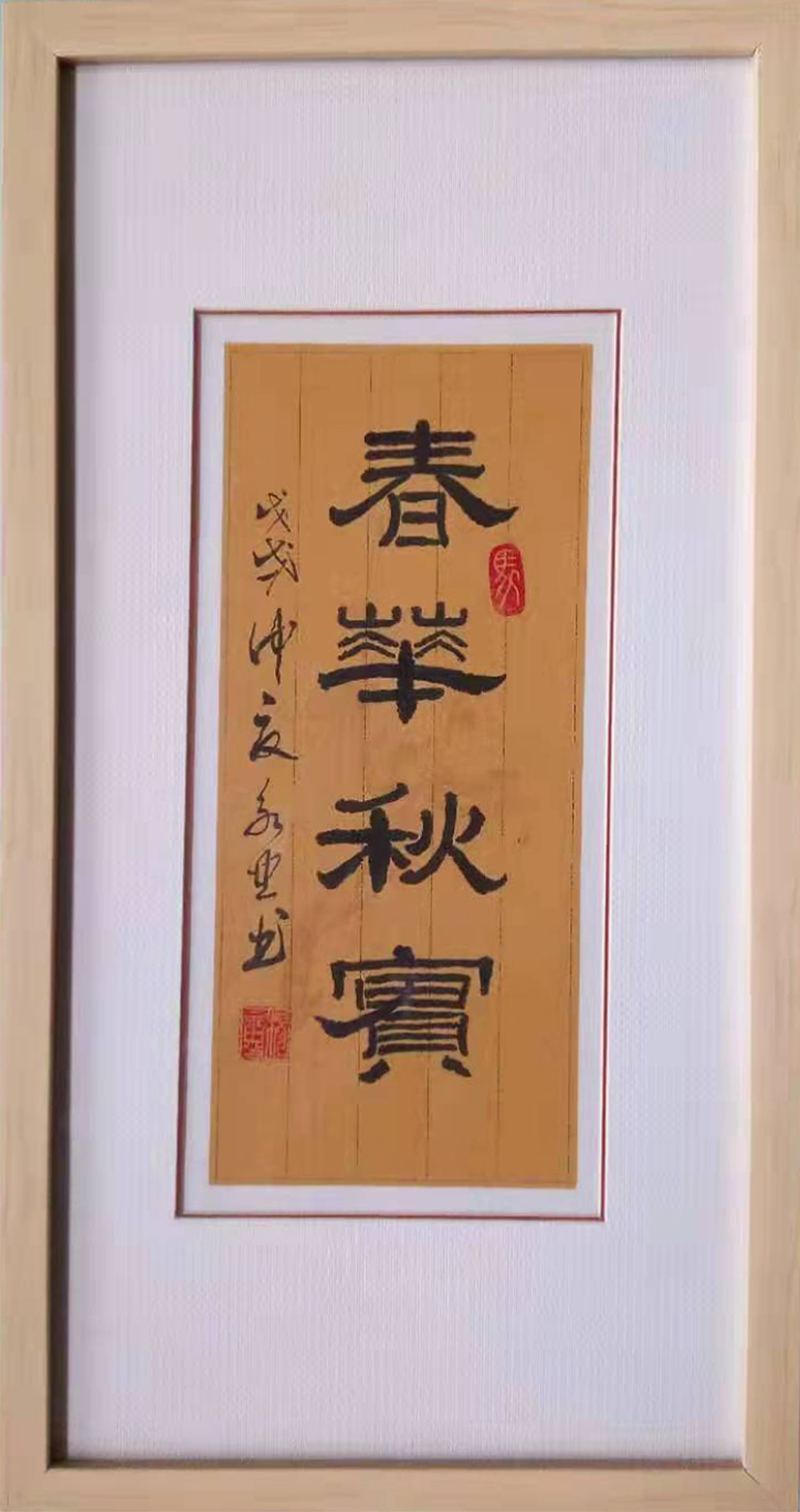 春華秋實
戊戌仲夏永书